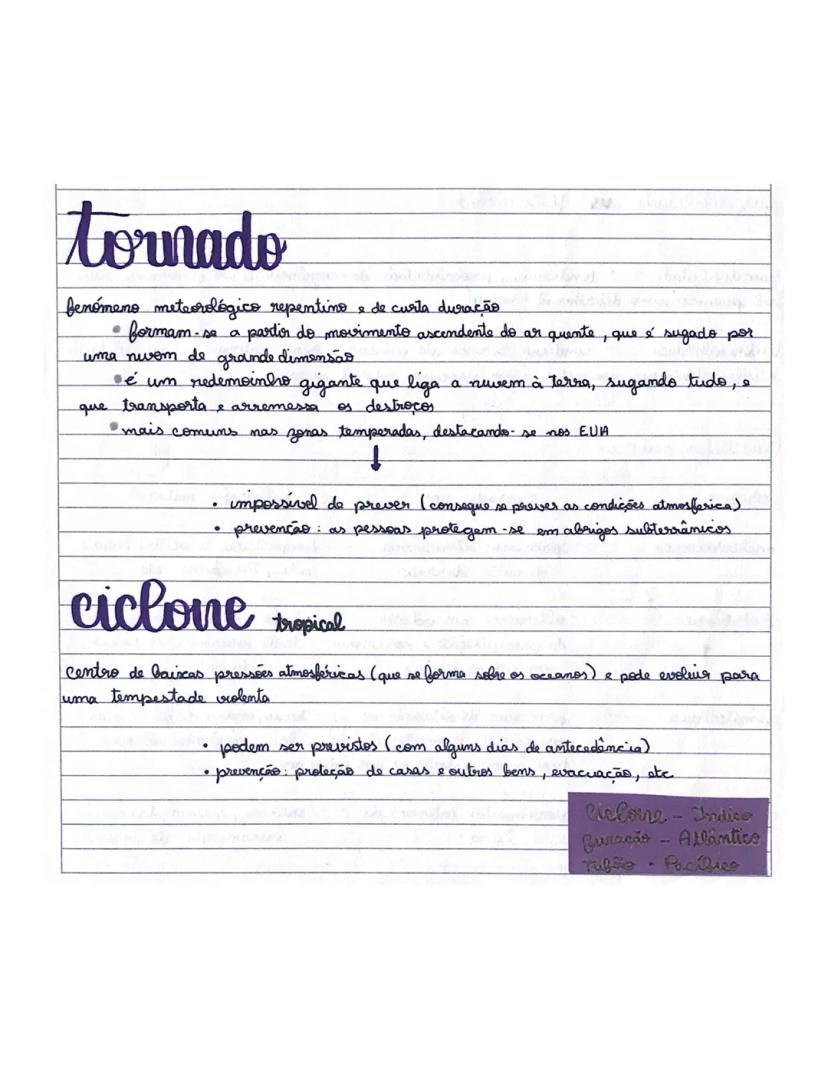 tornado
fenómeno meteorológico repentino e de curta duração
• formam-se a partir do movimento ascendente do ar quente, que é sugado por
uma nuvem de grande dimensão
• é um redemoinho gigante que liga a nuvem à terra, sugando tudo, e
que transporta e arremessa os destroços
• mais comuns nas zonas temperadas, destacando-se nos EUA
↓
• impossível de prever (consegue se prever as condições atmosférica)
• prevenção: as pessoas protegem-se em abrigos subterrânicos
ciclone tropical
centro de baixas pressões atmosféricas (que se forma sobre os oceanos) e pode evoluir para
uma tempestade violenta
• podem ser previstos (com alguns dias de antecedência)
• prevenção: proteção de casas e outros bens, evacuação, etc
Ciclone - Índico
Furacão - Atlântico
Tufão - Pacífico